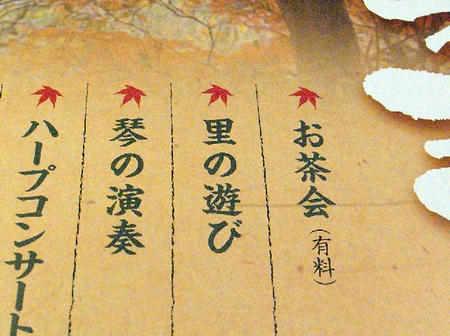 お茶会（有料）
里の遊び
琴の演奏
ハープコンサート